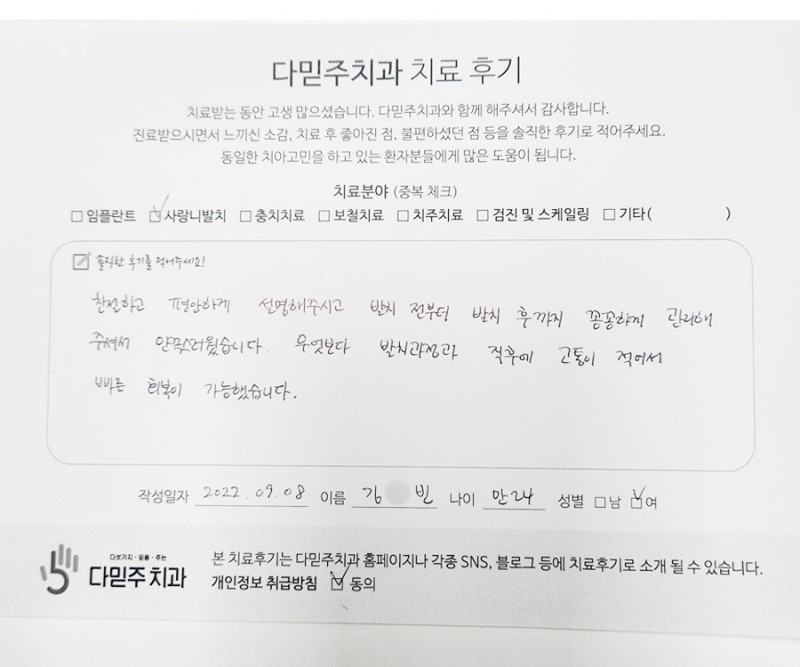 다믿주치과 치료 후기
치료받는 동안 고생 많으셨습니다. 다믿주치과와 함께 해주셔서 감사합니다.
진료받으시면서 느끼신 소감, 치료 후 좋아진 점, 불편하셨던 점 등을 솔직한 후기로 적어주세요.
동일한 치아고민을 하고 있는 환자분들에게 많은 도움이 됩니다.
치료분야 (중복 체크)
□ 임플란트 ☑ 사랑니발치 □ 충치치료 □ 보철치료 □ 치주치료 □ 검진 및 스케일링 □ 기타 ( )
솔직한 후기를 적어주세요!
친절하고 편안하게 설명해주시고 발치 전부터 발치 후까지 꼼꼼하게 관리해
주셔서 만족스러웠습니다. 무엇보다 발치과정과 직후에 고통이 적어서
빠른 회복이 가능했습니다.
작성일자 2022.09.08 이름 김 빈 나이 만24 성별 □ 남 ☑ 여
다섯가지·믿음·주는
다믿주치과
본 치료후기는 다믿주치과 홈페이지나 각종 SNS, 블로그 등에 치료후기로 소개 될 수 있습니다.
개인정보 취급방침 ☑ 동의